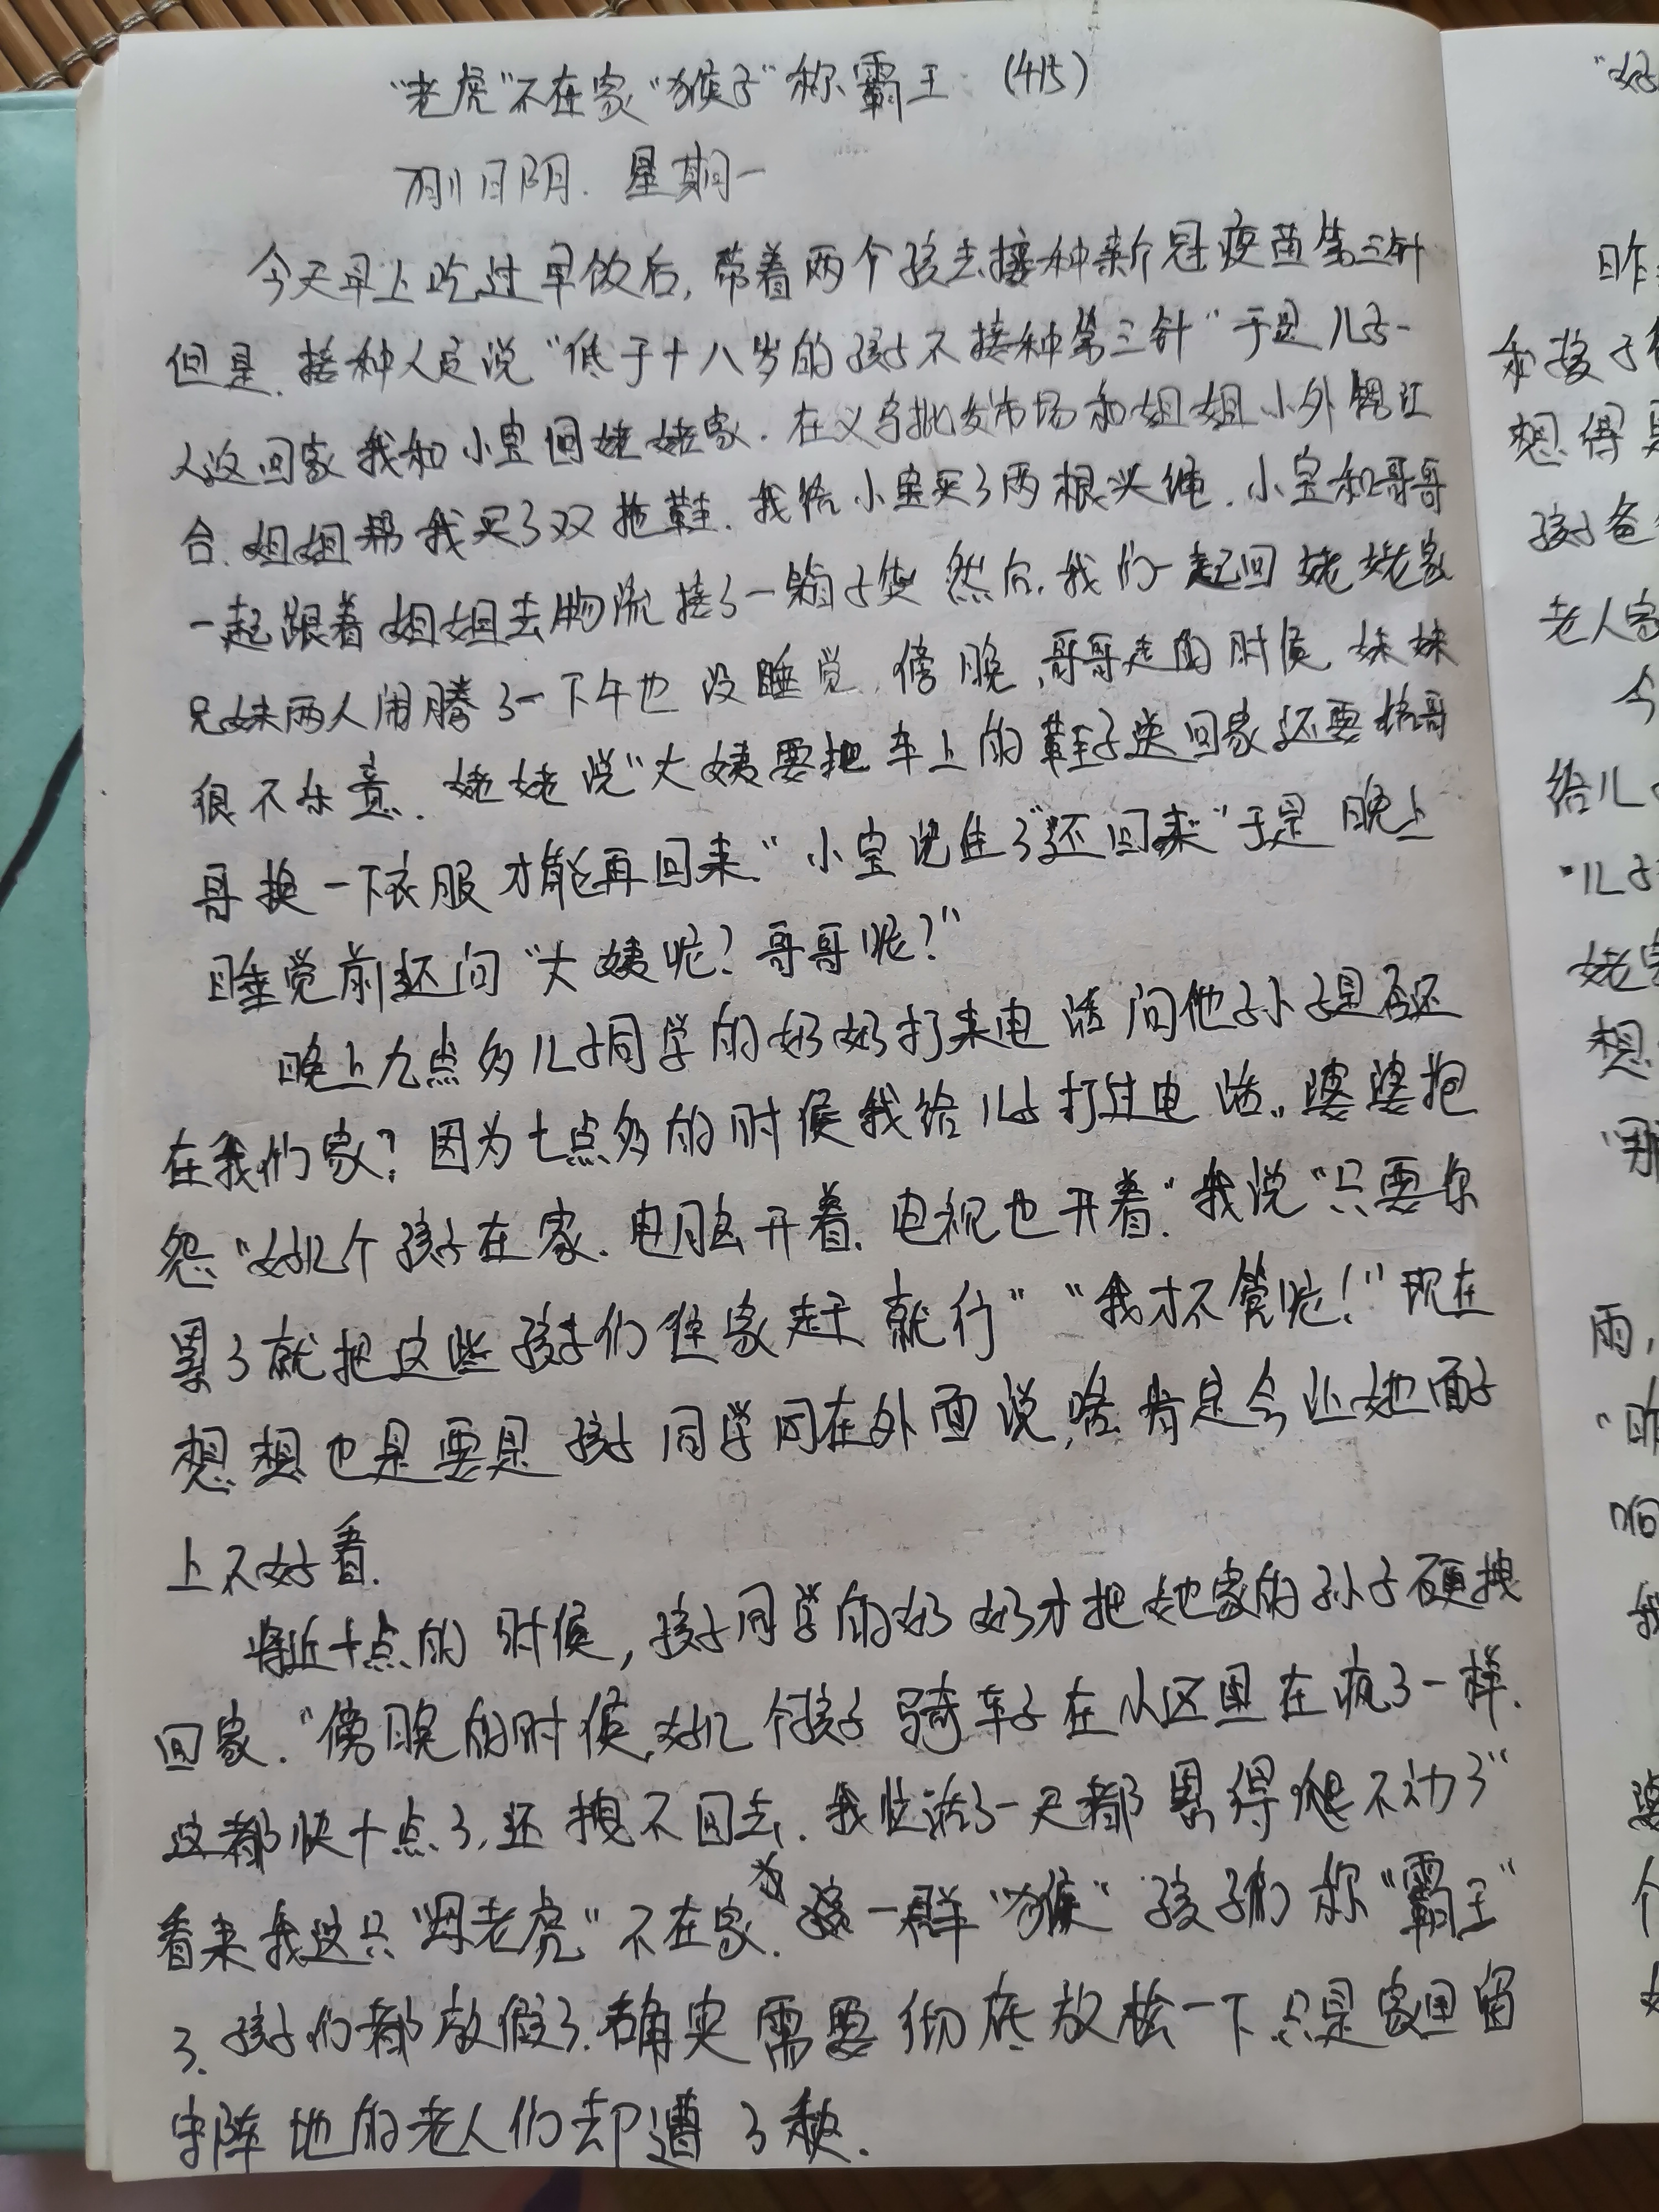 "老虎"不在家"猴子"称霸王 (415)
7月11日阴. 星期一
今天早上吃过早饭后,带着两个孩去接种新冠疫苗第三针
但是.接种人员说"低于十八岁的孩子不接种第三针"于是儿子一
人返回家我和小宝回姥姥家.在义乌批发市场和姐姐小外甥汇
合.姐姐帮我买了双拖鞋.我给小宝买了两根头绳.小宝和哥哥
一起跟着姐姐去物流接了一箱子货然后.我们一起回姥姥家
兄妹两人闹腾了一下午也没睡觉.傍晚,哥哥走的时候,妹妹
很不乐意.姥姥说"大姨要把车上的鞋子送回家还要给哥
哥换一下衣服才能再回来."小宝记住了"还回来"于是晚上
睡觉前还问"大姨呢?哥哥呢?"
晚上九点多儿子同学的奶奶打来电话问他孙子是否还
在我们家?因为七点多的时候我给儿子打过电话.婆婆抱
怨"好几个孩子在家.电脑开着.电视也开着."我说"只要你
累了就把这些孩子们往家赶就行""我才不管呢!"现在
想想也是要是孩子同学间在外面说,啥肯定会让她面子
上不好看.
将近十点的时候,孩子同学的奶奶才把她家的孙子硬拽
回家."傍晚的时候,好几个孩子骑车子在小区里在疯了一样.
这都快十点了,还拽不回去.我忙活了一天都累得爬不动了"
看来我这只"母老虎"不在家.一群"猴"孩子们称"霸王"
了.孩子们都放假了.确实需要彻底放松一下.只是家里留
守阵地的老人们却遭了秧.
"好
昨
和孩子
想得
孩子爸
老人家
今
给儿
"儿子
姥
想
"那
雨,
"昨
响
我
婆
个